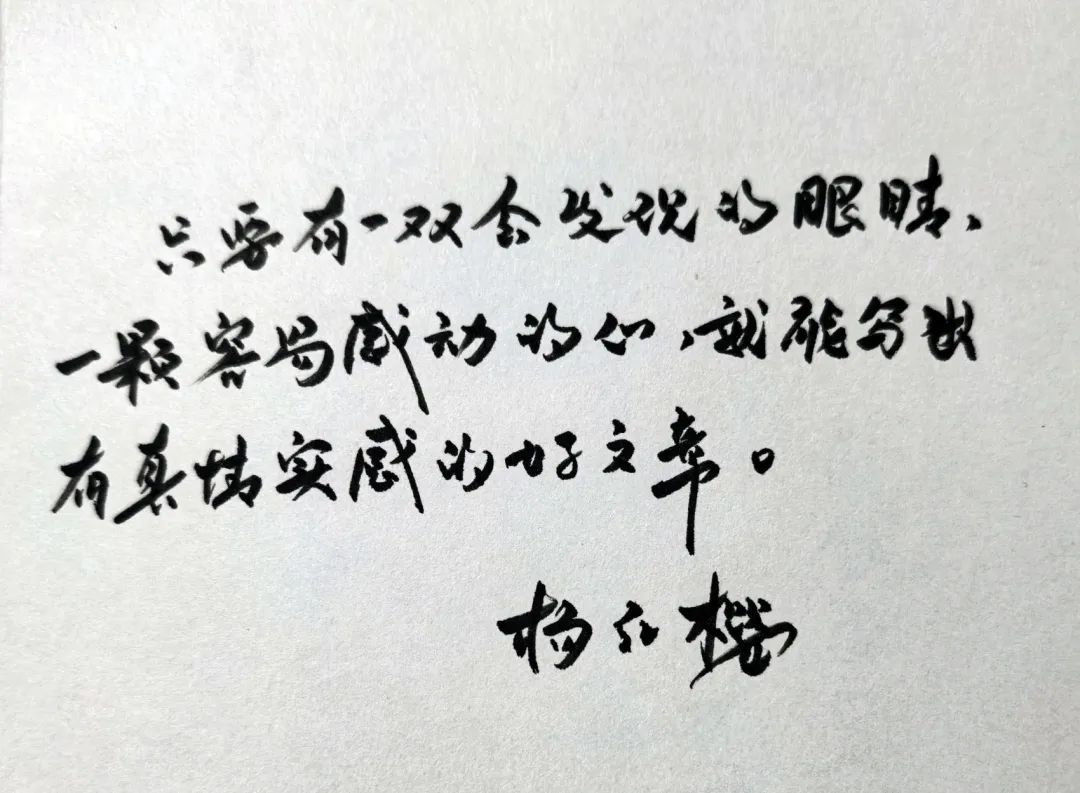 只要有一双会发现的眼睛、
一颗容易感动的心，就能写出
有真情实感的好文章。
杨红樱